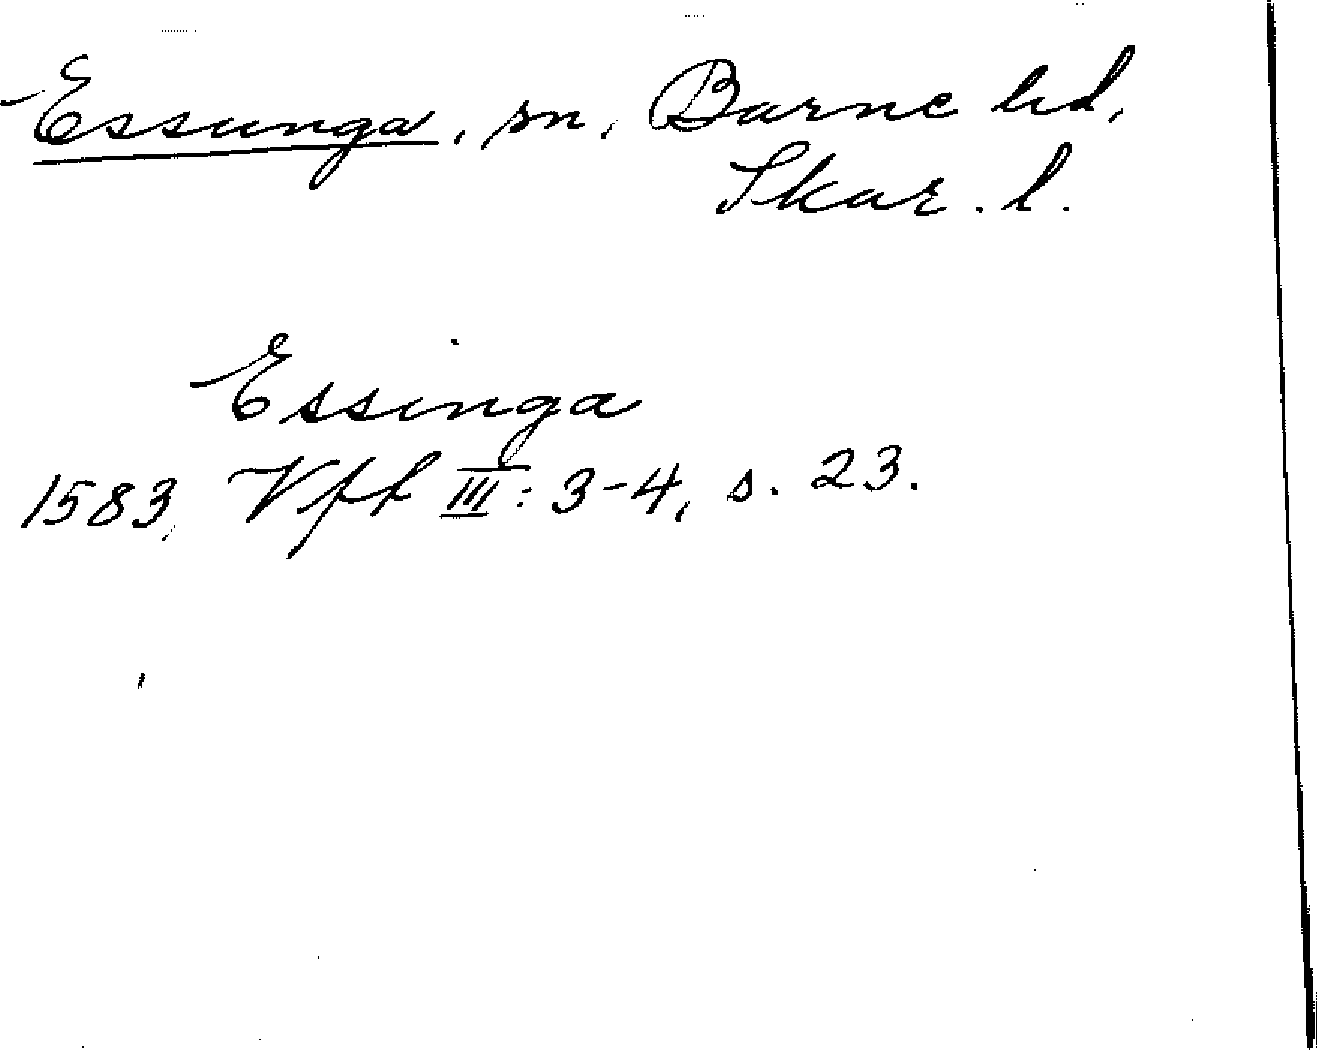 Essunga, sn, Barne hd,
Skar. l.
Essinga
1583, Vfh III: 3-4, s. 23.